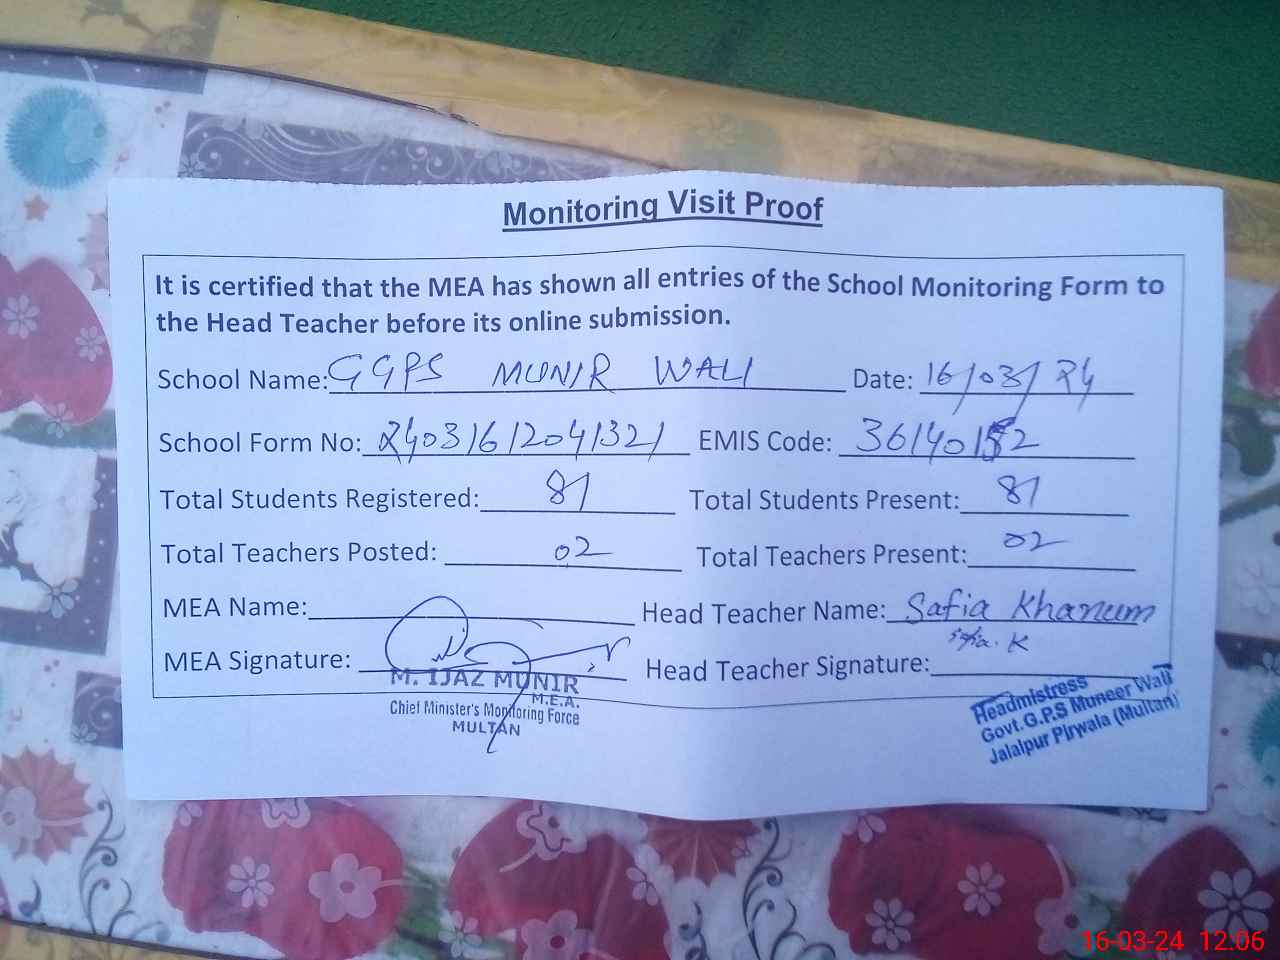 Monitoring Visit Proof
It is certified that the MEA has shown all entries of the School Monitoring Form to
the Head Teacher before its online submission.
School Name: GGPS MUNIR WALI Date: 16/03/24
School Form No: 24031612041321 EMIS Code: 36140152
Total Students Registered: 81 Total Students Present: 81
Total Teachers Posted: 02 Total Teachers Present: 02
MEA Name: Head Teacher Name: Safia Khanum
MEA Signature: Head Teacher Signature: Safia. K
M. IJAZ MUNIR
M.E.A.
Chief Minister's Monitoring Force
MULTAN
Headmistress
Govt.G.P.S Muneer Wali
Jalalpur Pirwala (Multan)
16-03-24 12:06